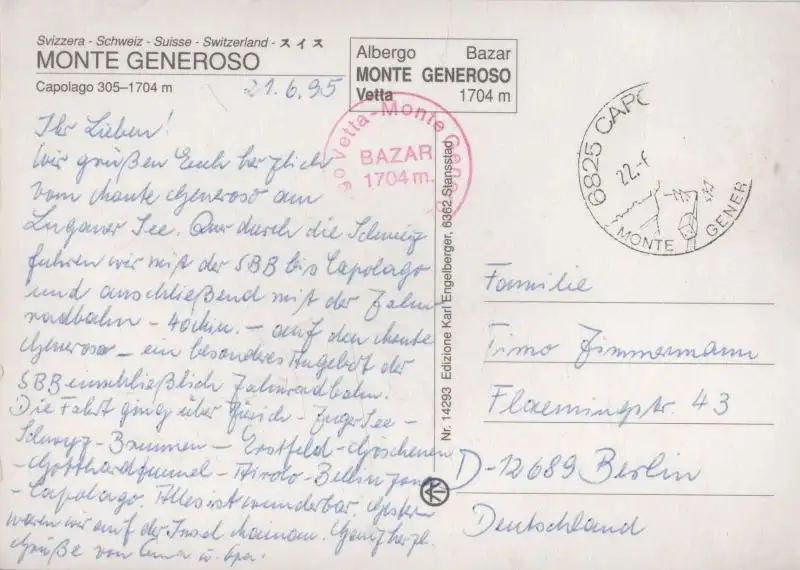 Svizzera - Schweiz - Suisse - Switzerland - スイス
MONTE GENEROSO
Capolago 305–1704 m
21.6.95
Albergo Bazar
MONTE GENEROSO
Vetta 1704 m
go Vetta-Monte Gene
BAZAR
1704 m.
6825 CAPO
22.-6
MONTE GENER
Ihr Lieben!
Wir grüßen Euch herzlich
vom Monte Generoso am
Luganer See. Quer durch die Schweiz
fuhren wir mit der SBB bis Capolago
und anschließend mit der Zahn-
radbahn - 40 Min. - auf den Monte
Generoso - ein besonderes Angebot der
SBB einschließlich Zahnradbahn.
Die Fahrt ging über Zürich - Zuger See -
Schwyz - Brunnen - Erstfeld - Göschenen
- Gotthardtunnel - Airolo - Bellinzona
- Capolago. Alles ist wunderbar. Gestern
waren wir auf der Insel Mainau. Ganz herzl.
Grüße von Oma u. Opa.
Nr. 14293 Edizione Karl Engelberger, 6362 Stansstad
Familie
Timo Zimmermann
Flaemingstr. 43
D-12689 Berlin
Deutschland